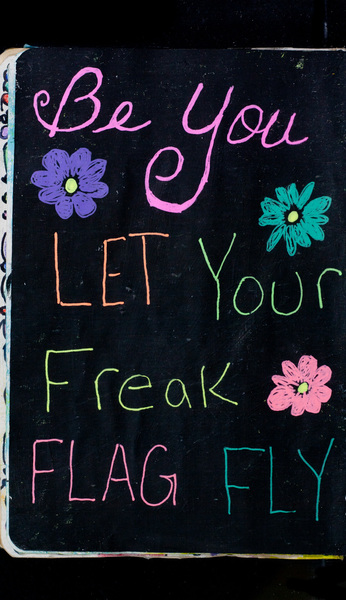 Be You
LET Your
Freak
FLAG FLY